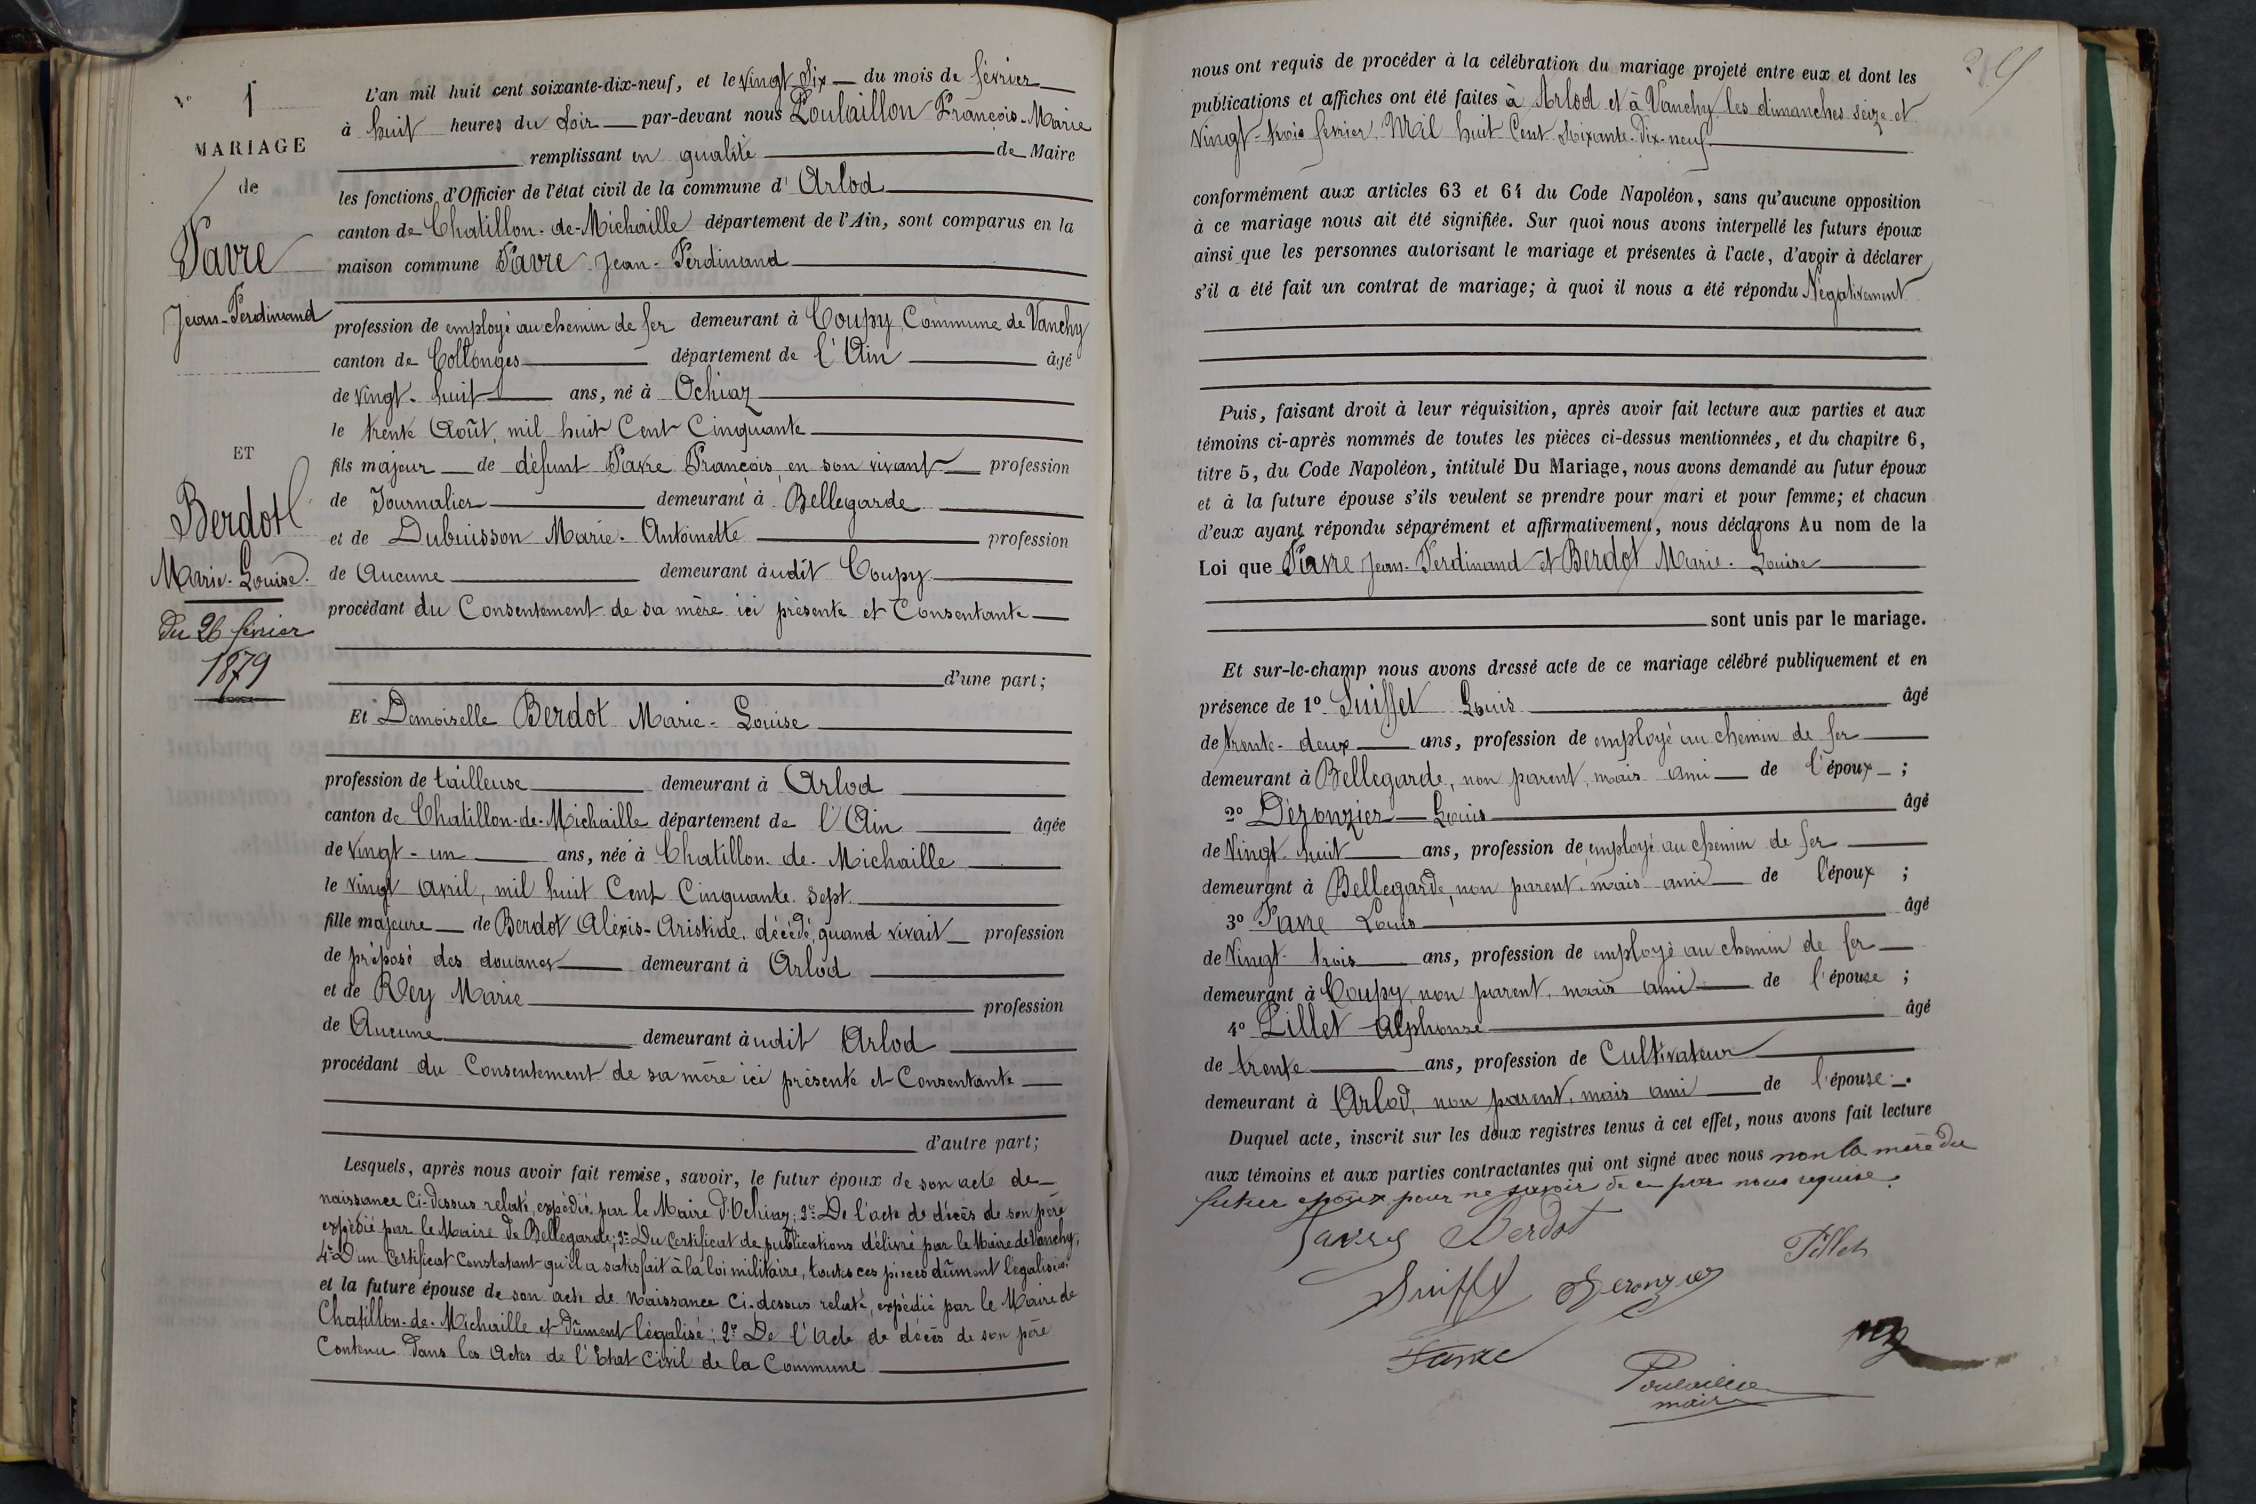 N° 1
MARIAGE
de
Favre
Jean-Ferdinand
ET
Berdot
Marie-Louise.
Du 26 février
1879
L'an mil huit cent soixante-dix-neuf, et le vingt six du mois de février
à huit heures du soir par-devant nous Poulaillon François-Marie
remplissant en qualité de Maire
les fonctions d'Officier de l'état civil de la commune d' Arlod
canton de Chatillon-de-Michaille département de l'Ain, sont comparus en la
maison commune Favre Jean-Ferdinand
profession de employé au chemin de fer demeurant à Coupy, Commune de Vanchy
canton de Collonges département de l'Ain âgé
de vingt-huit ans, né à Ochiaz
le trente Août, mil huit Cent Cinquante
fils majeur de défunt Favre François, en son vivant profession
de Journalier demeurant à Bellegarde
et de Dubuisson Marie-Antoinette profession
de Aucune demeurant àudit Coupy
procédant du Consentement de sa mère ici présente et Consentante
d'une part;
Et Demoiselle Berdot Marie-Louise
profession de tailleuse demeurant à Arlod
canton de Chatillon-de-Michaille département de l'Ain âgée
de vingt-un ans, née à Chatillon-de-Michaille
le vingt avril, mil huit Cent Cinquante-sept.
fille majeure de Berdot Aléxis-Aristide, décédé, quand vivait profession
de préposé des douanes demeurant à Arlod
et de Rey Marie profession
de Aucune demeurant àudit Arlod
procédant du Consentement de sa mère ici présente et Consentante
d'autre part;
Lesquels, après nous avoir fait remise, savoir, le futur époux de son acte de
naissance Ci-dessus relaté, expédié par le Maire d'Ochiaz; 2° De l'acte de décès de son père
expédié par le Maire de Bellegarde; 3° Du Certificat de publications délivré par le Maire de Vanchy;
4° D'un Certificat Constatant qu'il a satisfait à la loi militaire, toutes ces pièces dûment légalisées
et la future épouse de son acte de Naissance Ci-dessus relaté, expédié par le Maire de
Chatillon-de-Michaille et dûment légalisé; 2° De l'Acte de décès de son père
Contenu dans les Actes de l'Etat Civil de la Commune
nous ont requis de procéder à la célébration du mariage projeté entre eux et dont les
publications et affiches ont été faites à Arlod et à Vanchy les dimanches seize et
Vingt-trois février Mil huit Cent Soixante-Dix-neuf
conformément aux articles 63 et 64 du Code Napoléon, sans qu'aucune opposition
à ce mariage nous ait été signifiée. Sur quoi nous avons interpellé les futurs époux
ainsi que les personnes autorisant le mariage et présentes à l'acte, d'avoir à déclarer
s'il a été fait un contrat de mariage; à quoi il nous a été répondu Négativement
Puis, faisant droit à leur réquisition, après avoir fait lecture aux parties et aux
témoins ci-après nommés de toutes les pièces ci-dessus mentionnées, et du chapitre 6,
titre 5, du Code Napoléon, intitulé Du Mariage, nous avons demandé au futur époux
et à la future épouse s'ils veulent se prendre pour mari et pour femme; et chacun
d'eux ayant répondu séparément et affirmativement, nous déclarons Au nom de la
Loi que Favre Jean-Ferdinand et Berdot Marie-Louise
sont unis par le mariage.
Et sur-le-champ nous avons dressé acte de ce mariage célébré publiquement et en
présence de 1° Suiffet Louis âgé
de trente-deux ans, profession de employé au chemin de fer
demeurant à Bellegarde, non parent, mais ami de l'époux;
2° Déronzier Louis âgé
de Vingt-huit ans, profession de employé au chemin de fer
demeurant à Bellegarde, non parent, mais ami de l'époux;
3° Favre Louis âgé
de Vingt-trois ans, profession de employé au chemin de fer
demeurant à Coupy, non parent, mais ami de l'épouse;
4° Pillet Alphonse âgé
de trente ans, profession de Cultivateur
demeurant à Arlod, non parent, mais ami de l'épouse.
Duquel acte, inscrit sur les doux registres tenus à cet effet, nous avons fait lecture
aux témoins et aux parties contractantes qui ont signé avec nous non la mère du
futur époux pour ne savoir de ce par nous requise.
Favre Berdot
Pillet
Suiffet Deronzier
Favre
Rey
Poulaillon
maire